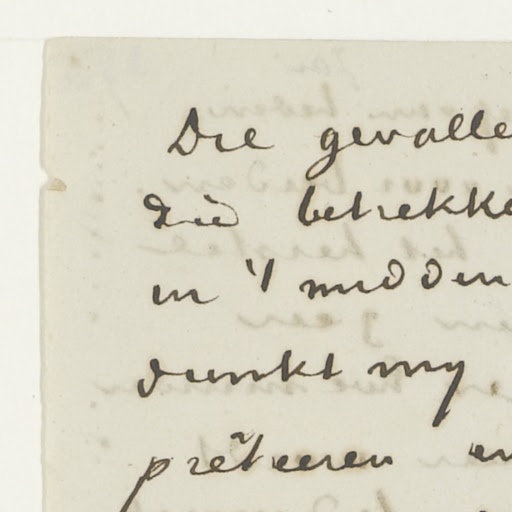 Die gevalle
die betrekke
in 't midden
dunkt my
prêteeren en